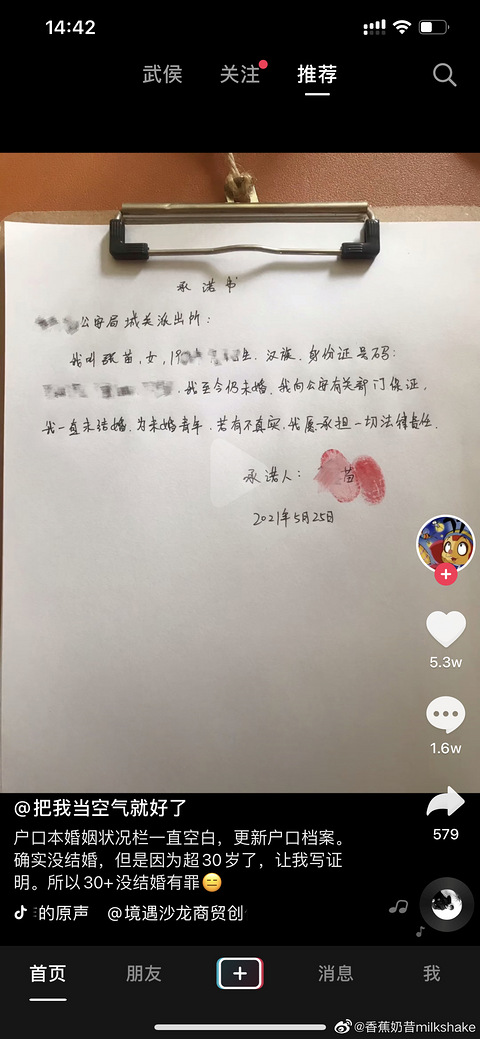 14:42
武侯 关注 推荐
承诺书
公安局城关派出所：
我叫张苗，女，19 生，汉族，身份证号码：
，我至今仍未婚，我向公安有关部门保证，
我一直未结婚，为未婚青年，若有不真实，我愿承担一切法律责任。
承诺人： 苗
2021年5月25日
5.3w
1.6w
579
@把我当空气就好了
户口本婚姻状况栏一直空白，更新户口档案。
确实没结婚，但是因为超30岁了，让我写证
明。所以30+没结婚有罪😑
的原声 @境遇沙龙商贸创
首页 朋友 消息 我
@香蕉奶昔milkshake